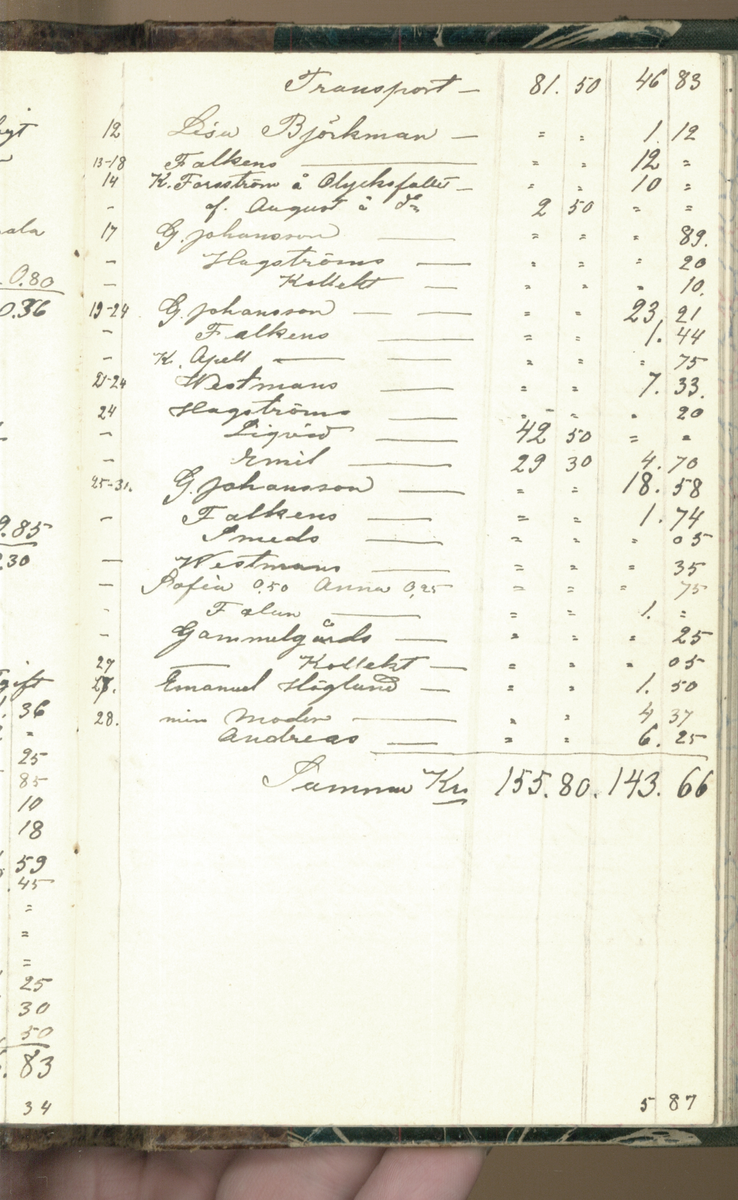 Transport — 81. 50 46 83
12 Lisa Björkman — " " 1. 12
13-18 Falkens — " " 12 "
14 K. Forsström å Olycksfallet — " " 10 "
- af. August å 2 50 " "
17 G. Johansson — " " " 89.
- Hagströms — " " " 20
- Kollekt — " " " 10.
19-24 G. Johansson — — " " 23. 21
- Falkens — " " 1. 44
- K. Apelt — " " " 75
21-24 Westmans — " " 7. 33.
24 Hagströms — " " " 20
- Liqvid — 42 50 " "
- Emil — 29 30 4. 70
25-31. G. Johansson — " " 18. 58
- Falkens — " " 1. 74
Smeds — " " " 05
— Westmans — " " " 35
- Sofia 0,50 Anna 0,25 " " " 75
- Falun — " " 1. "
- Gammelgårds — " " " 25
27 — Kollekt — " " " 05
27. Emanuel Höglund — " " 1. 50
28. min Moder — " " 4 37
Andreas — " " 6. 25
Summa Kr 155. 80. 143. 66
5 87
ala
0.80
0.36
9.85
.30
gift
. 36
"
25
85
10
18
59
.45
"
"
"
25
30
50
. 83
34